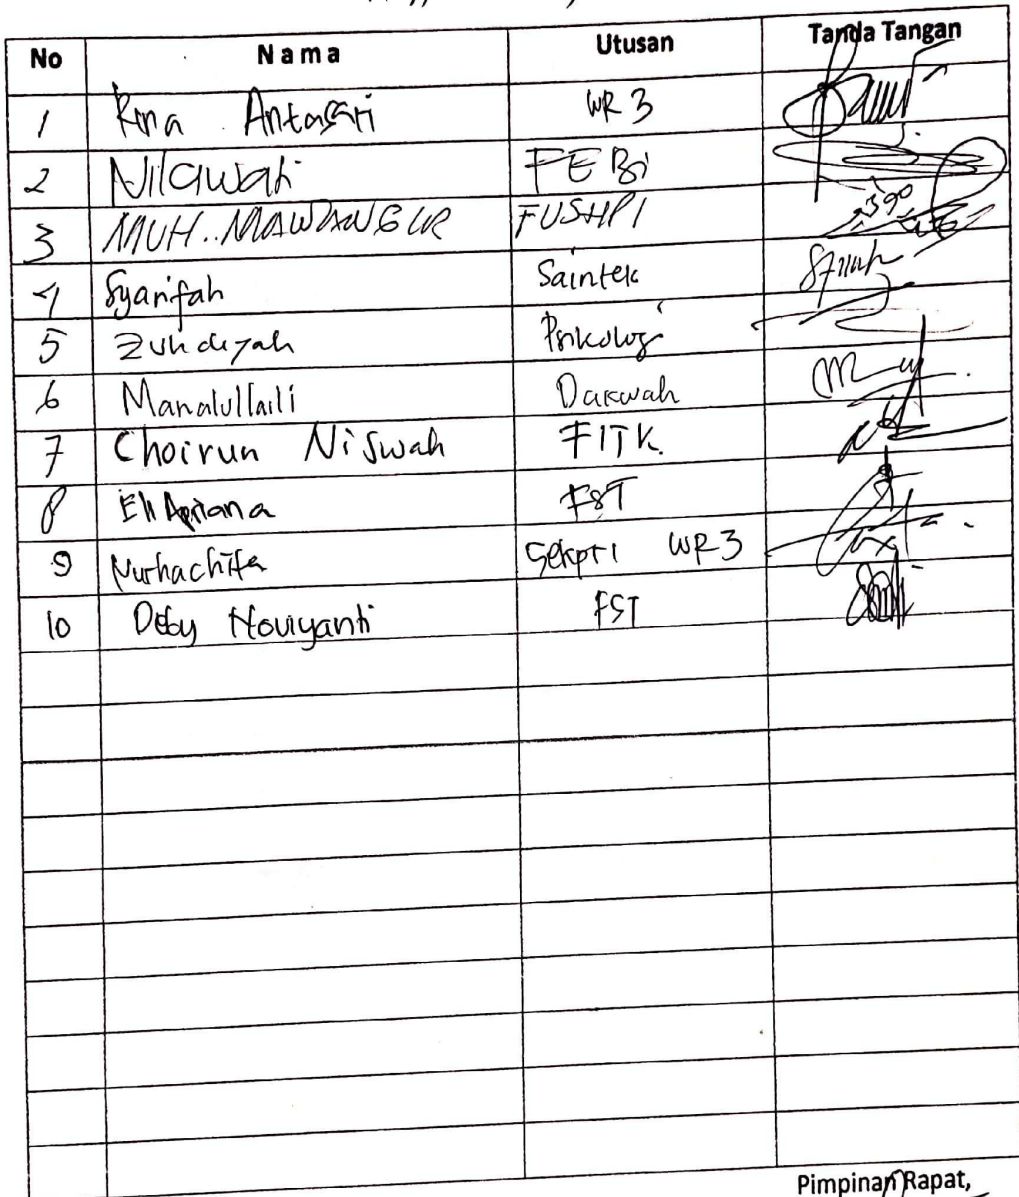 No Nama Utusan Tanda Tangan
1 Rina Antasari WR 3
2 Nilawati FEBi
3 MUH. MAWDANGUR FUSHPI
4 Syarifah Saintek
5 Zuhdiyah Psikologi
6 Manalullaili Dakwah
7 Choirun Niswah FITK.
8 Eli Apriana FST
9 Nurhachita Sekpri WR3
10 Deby Noviyanti FST
Pimpinan Rapat,